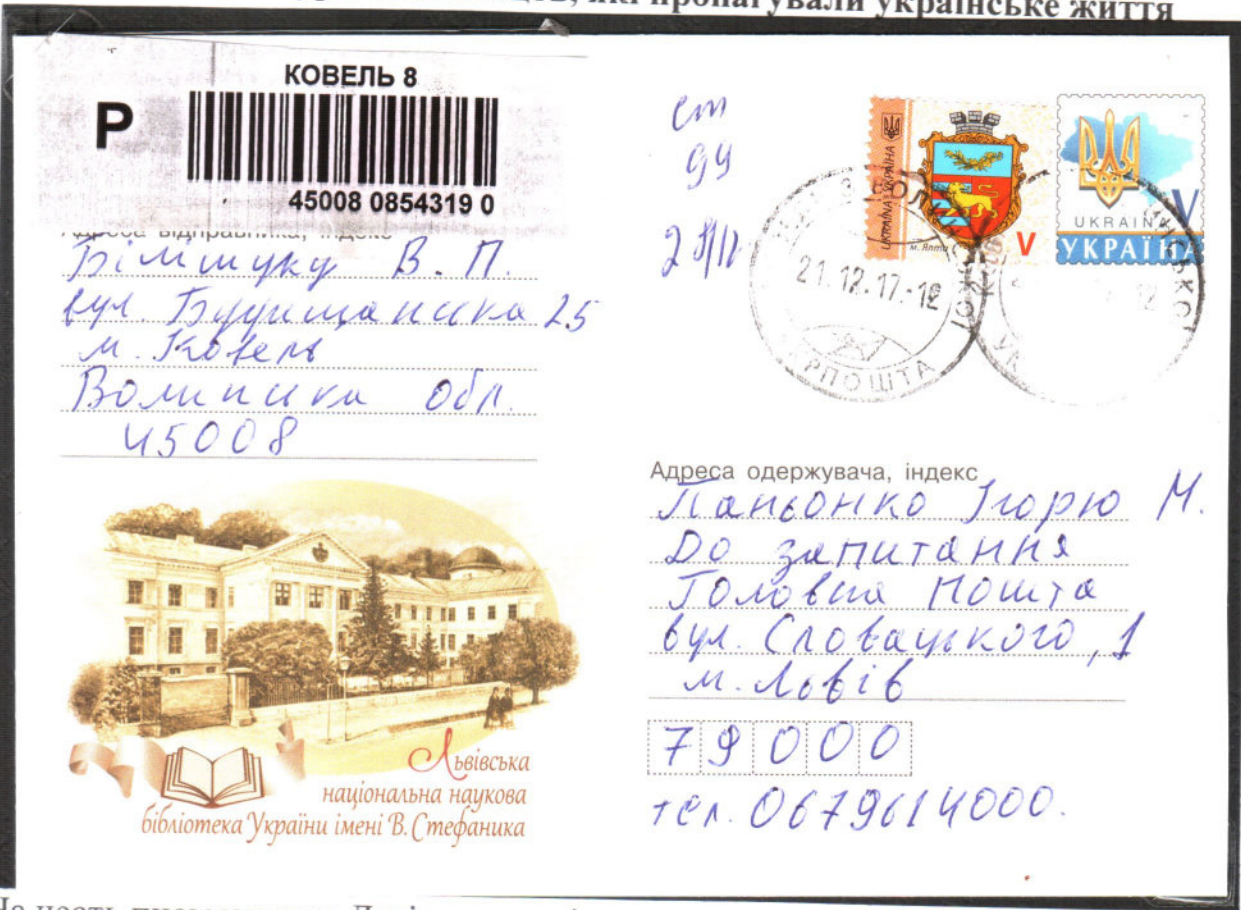 які пропагували українське життя
КОВЕЛЬ 8
Р
45008 0854319 0
Адреса відправника, індекс
В. П.
вул. 25
м. Ковель
Волинська обл.
45008
ст
99
UKRAINA УКРАЇНА
м. Ялта
V
UKRAINA
V
УКРАЇНА
21.12.17-12
УКРПОШТА
Адреса одержувача, індекс
Паньонко Ігорю М.
До запитання
Головна Пошта
вул. Словацького, 1
м. Львів
79000
тел. 0679614000.
Львівська
національна наукова
бібліотека України імені В. Стефаника